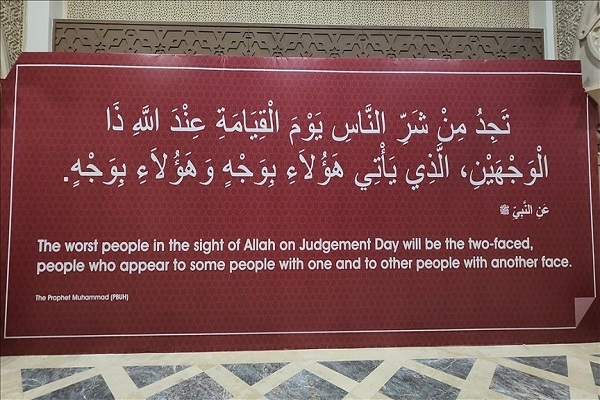 تَجِدُ مِنْ شَرِّ النَّاسِ يَوْمَ الْقِيَامَةِ عِنْدَ اللَّهِ ذَا
الْوَجْهَيْنِ، الَّذِي يَأْتِي هَؤُلاَءِ بِوَجْهٍ وَهَؤُلاَءِ بِوَجْهٍ.
عَنِ النَّبِيِّ ﷺ
The worst people in the sight of Allah on Judgement Day will be the two-faced,
people who appear to some people with one and to other people with another face.
The Prophet Muhammad (PBUH)